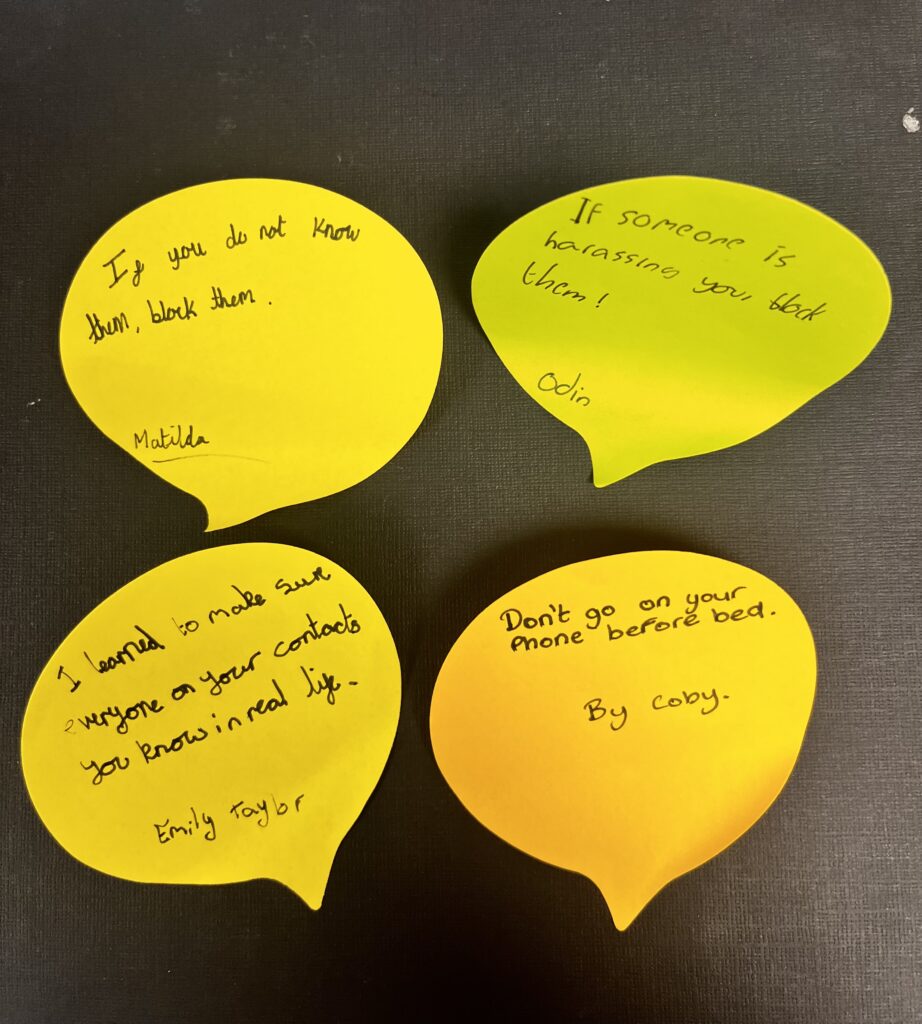 If you do not know
them, block them.
Matilda
If someone is
harassing you, block
them!
Odin
I learned to make sure
everyone on your contacts
you know in real life.
Emily Taylor
Don't go on your
Phone before bed.
By Coby.